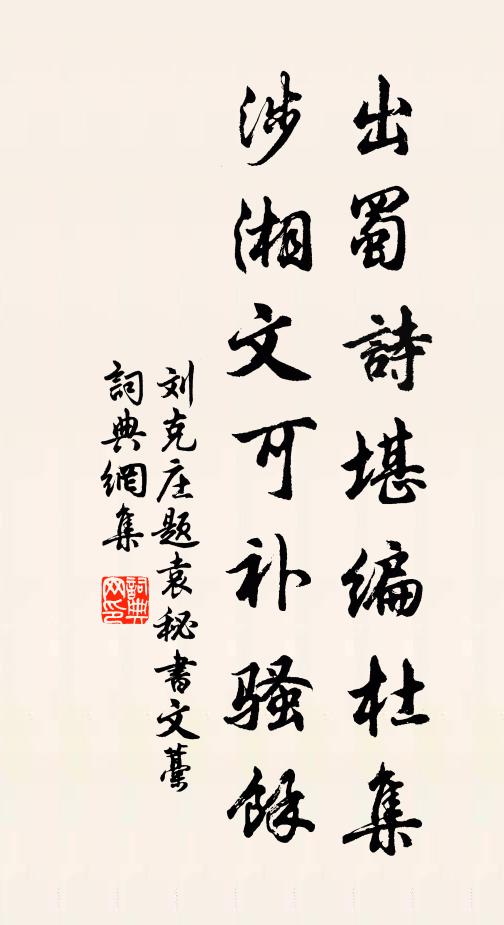 出蜀詩堪編杜集
涉湘文可补骚餘
刘克庄题袁秘書文藁
詞典網集
詞典网印